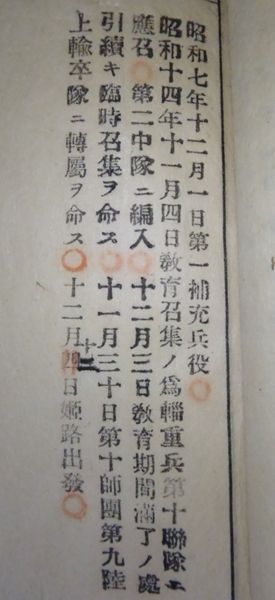 昭和七年十二月一日第一補充兵役○
昭和十四年十一月四日教育召集ノ爲輜重兵第十聯隊ニ
應召○第二中隊ニ編入○十二月三日教育期間滿了ノ處
引續キ臨時召集ヲ命ス○十一月三十日第十師團第九陸
上輸卒隊ニ轉屬ヲ命ス○十二月十二日姫路出發○